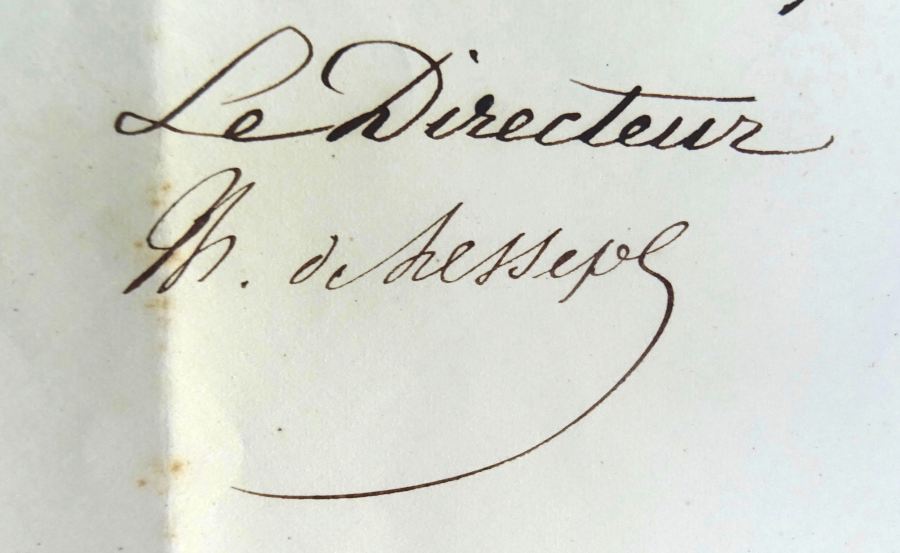 Le Directeur
Th. de Lesseps